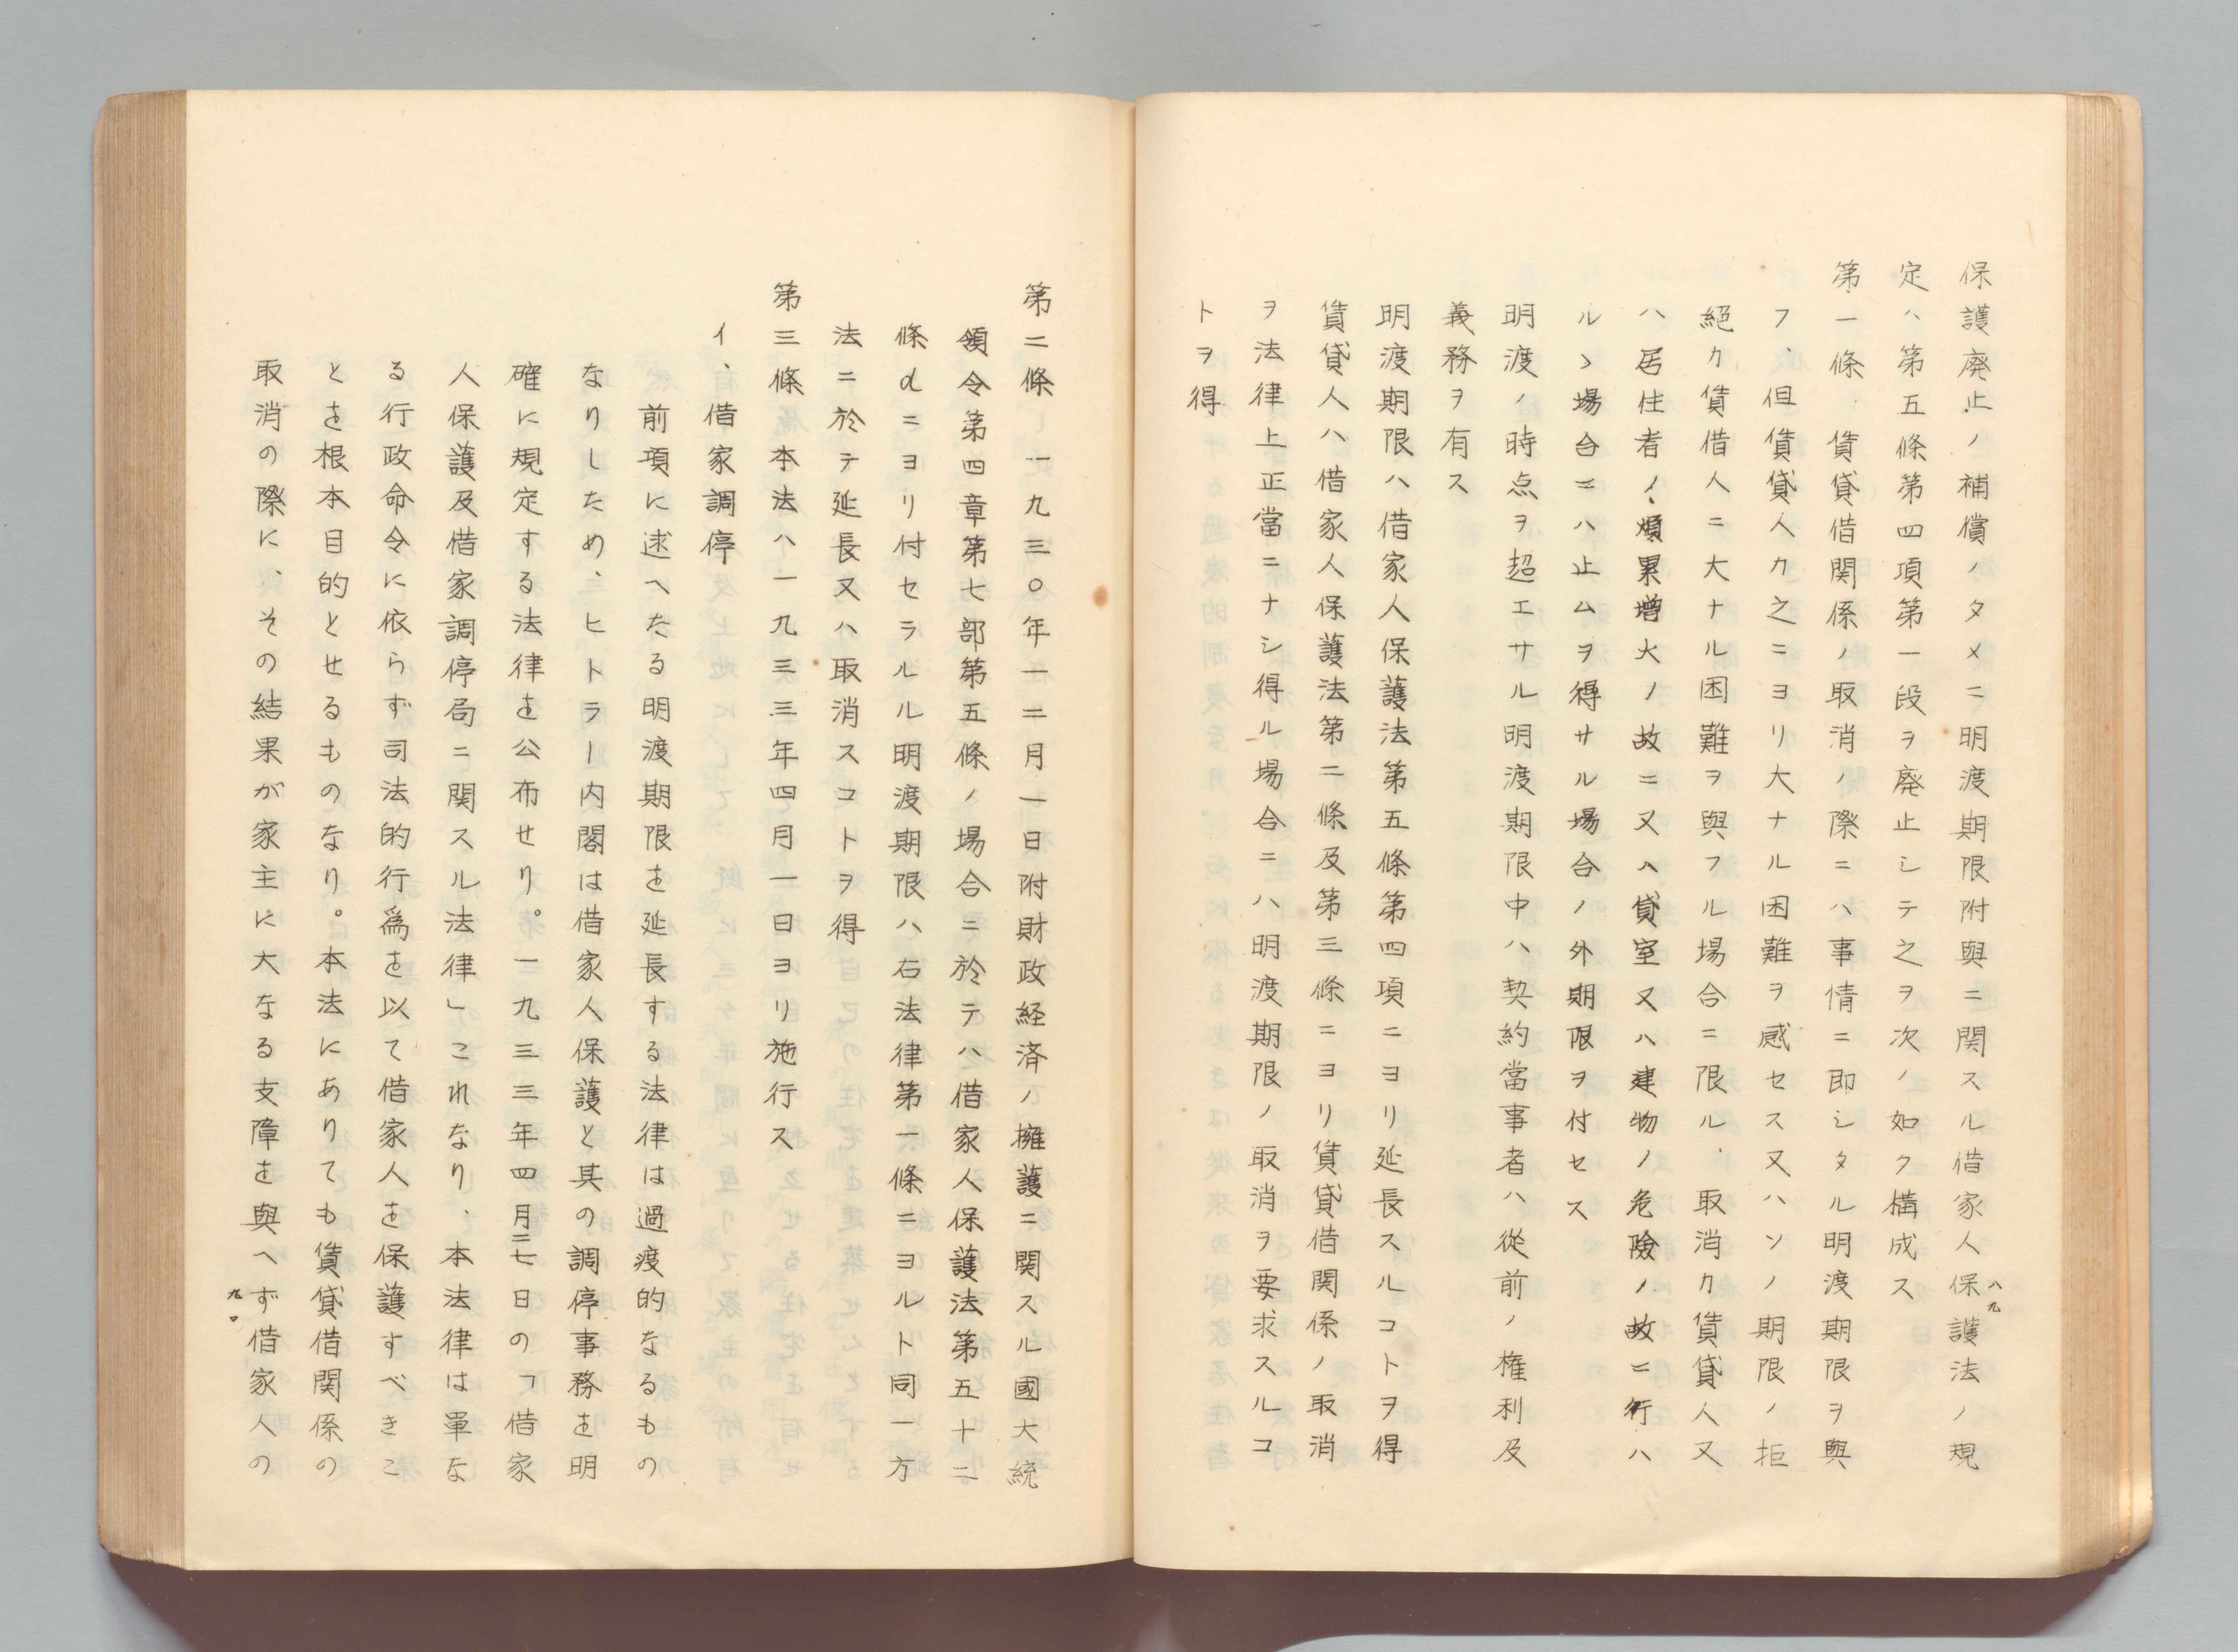 保護廃止ノ補償ノタメニ明渡期限附與ニ関スル借家人保護法ノ規
定ハ第五條第四項第一段ヲ廃止シテ之ヲ次ノ如ク構成ス
第一條 賃貸借関係ノ取消ノ際ニハ事情ニ即シタル明渡期限ヲ與
フ、但賃貸人カ之ニヨリ大ナル困難ヲ感セス又ハソノ期限ノ拒
絕カ賃借人ニ大ナル困難ヲ與フル場合ニ限ル、取消カ賃貸人又
ハ居住者ノ、煩累増大ノ故ニ又ハ貸室又ハ建物ノ危險ノ故ニ行ハ
ルゝ場合ニハ止ムヲ得サル場合ノ外期限ヲ付セス
明渡ノ時点ヲ超エサル明渡期限中ハ契約當事者ハ從前ノ権利及
義務ヲ有ス
明渡期限ハ借家人保護法第五條第四項ニヨリ延長スルコトヲ得
賃貸人ハ借家人保護法第二條及第三條ニヨリ賃貸借関係ノ取消
ヲ法律上正當ニナシ得ル場合ニハ明渡期限ノ取消ヲ要求スルコ
トヲ得
八九
第二條 一九三〇年一二月一日附財政経済ノ擁護ニ関スル國大統
領令第四章第七部第五條ノ場合ニ於テハ借家人保護法第五十二
條dニヨリ付セラルル明渡期限ハ右法律第一條ニヨルト同一方
法ニ於テ延長又ハ取消スコトヲ得
第三條 本法ハ一九三三年四月一日ヨリ施行ス
イ、借家調停
前項に述へたる明渡期限を延長する法律は過渡的なるもの
なりしため、ヒトラー内閣は借家人保護と其の調停事務を明
確に規定する法律を公布せり。一九三三年四月二七日の「借家
人保護及借家調停局ニ関スル法律」これなり、本法律は單な
る行政命令に依らず司法的行爲を以て借家人を保護すべきこ
とを根本目的とせるものなり。本法にありても賃貸借関係の
取消の際に、その結果が家主に大なる支障を與へず借家人の
九〇